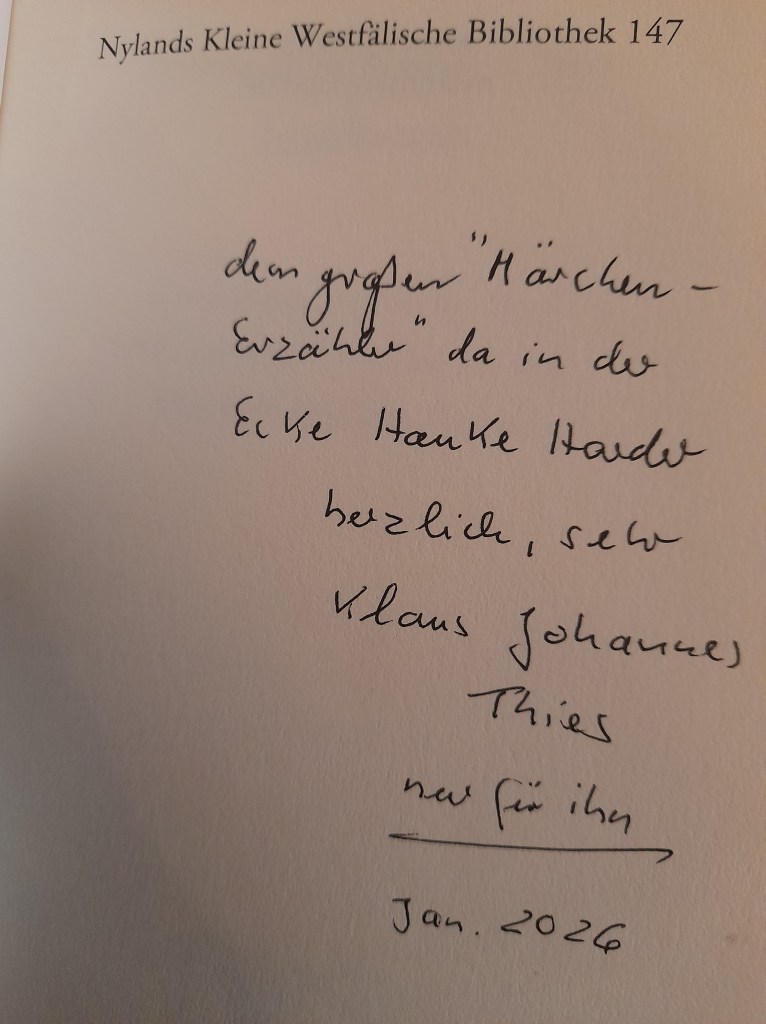 Nylands Kleine Westfälische Bibliothek 147
dem großen "Märchen-
Erzähler" da in der
Ecke Hauke Harder
herzlich, sehr
Klaus Johannes
Thies
nur für ihn
Jan. 2026